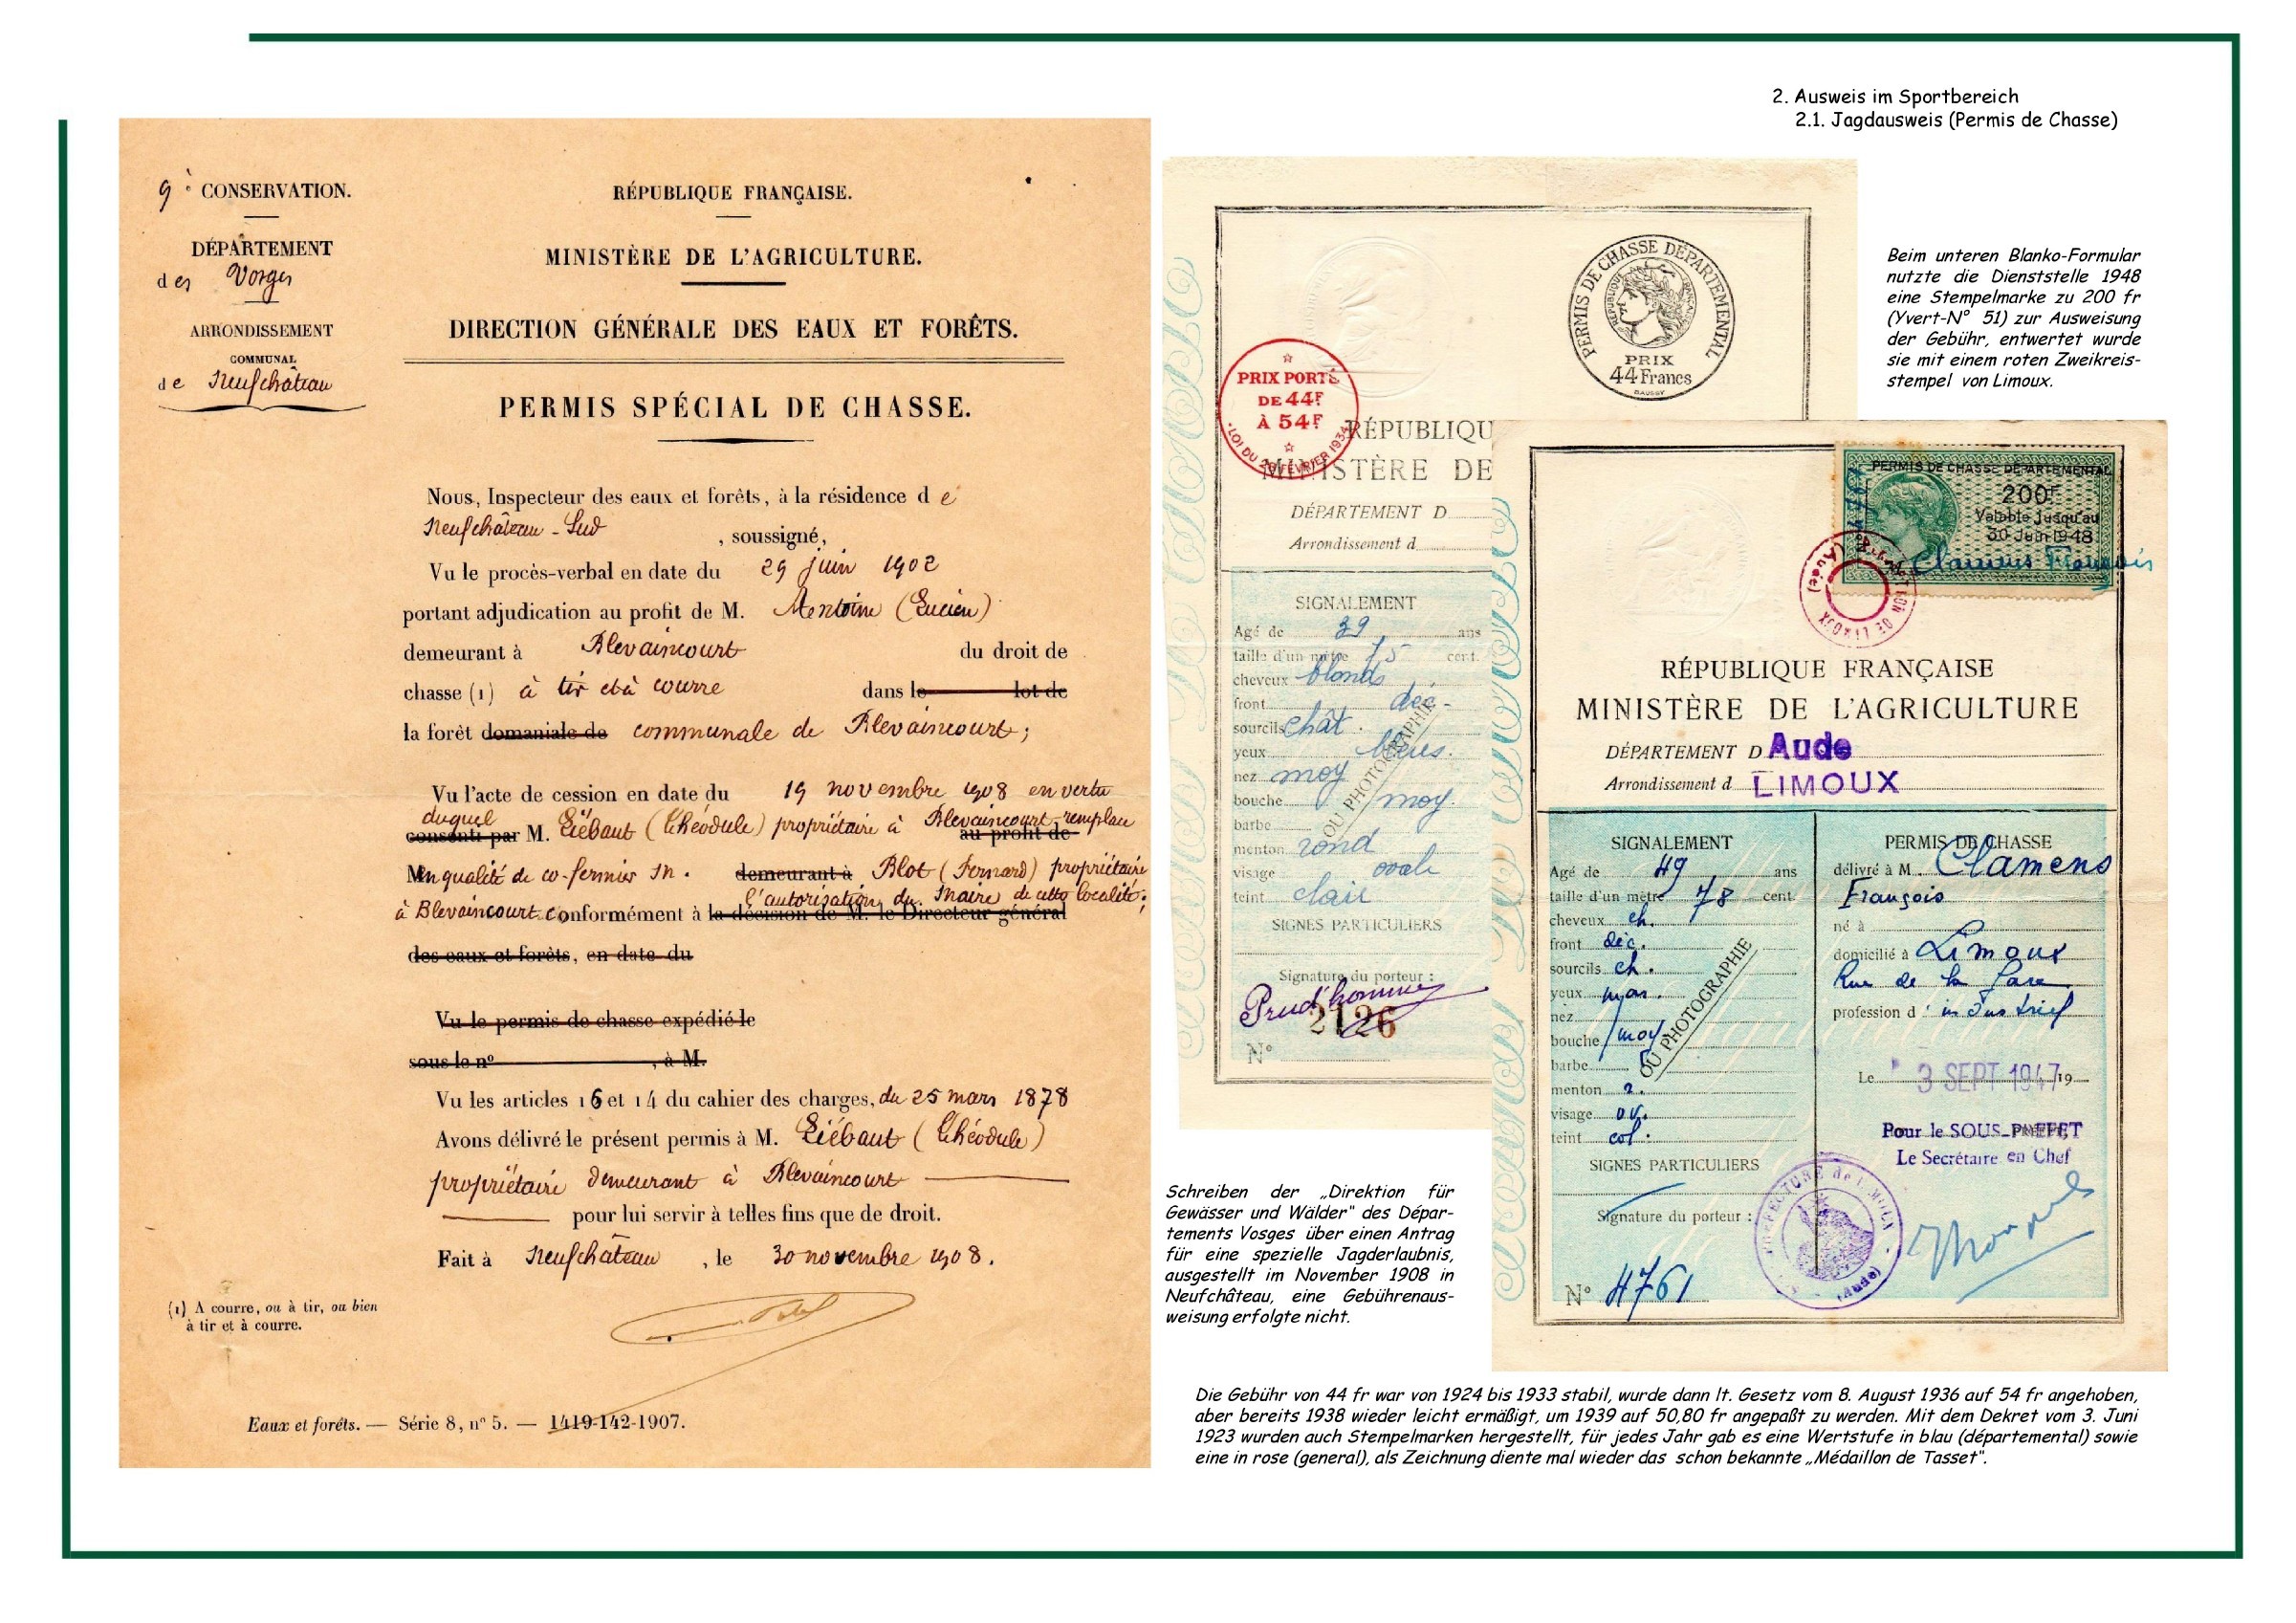 2. Ausweis im Sportbereich
2.1. Jagdausweis (Permis de Chasse)
9e CONSERVATION.
DÉPARTEMENT
des Vosges
ARRONDISSEMENT
COMMUNAL
de Neufchâteau
RÉPUBLIQUE FRANÇAISE.
MINISTÈRE DE L'AGRICULTURE.
DIRECTION GÉNÉRALE DES EAUX ET FORÊTS.
PERMIS SPÉCIAL DE CHASSE.
Nous, Inspecteur des eaux et forêts, à la résidence de
Neufchâteau-Sud, soussigné,
Vu le procès-verbal en date du 29 juin 1902
portant adjudication au profit de M. (Lucien)
demeurant à Blevaincourt du droit de
chasse (1) à tir et à courre dans le lot de
la forêt domaniale de communale de Blevaincourt;
Vu l'acte de cession en date du 19 novembre 1908 en vertu
duquel
consenti par M. Liébaut (Théodule) propriétaire à Blevaincourt remplace
au profit de
M en qualité de co-fermier M. demeurant à Blot (Fernard) propriétaire
l'autorisation du Maire de cette localité;
à Blevaincourt conformément à la décision de M. le Directeur général
des eaux et forêts, en date du
Vu le permis de chasse expédié le
sous le n° , à M.
Vu les articles 16 et 14 du cahier des charges, du 25 mars 1878
Avons délivré le présent permis à M. Liébaut (Théodule)
propriétaire demeurant à Blevaincourt
pour lui servir à telles fins que de droit.
Fait à Neufchâteau, le 30 novembre 1908.
(1) A courre, ou à tir, ou bien
à tir et à courre.
Eaux et forêts. — Série 8, n° 5. — 1419-142-1907.
PERMIS DE CHASSE DÉPARTEMENTAL
RÉPUBLIQUE FRANÇAISE
PRIX
44 Francs
BAUSSY
PRIX PORTÉ
DE 44F
À 54F
LOI DU 28 FÉVRIER 1934
RÉPUBLIQU
MINISTÈRE DE
DÉPARTEMENT D
Arrondissement d
SIGNALEMENT
Agé de 39 ans
taille d'un mètre 75 cent.
cheveux blonds
front déc.
sourcils chât.
yeux bleus.
nez moy
bouche moy.
barbe
menton rond
visage ovale
teint clair
OU PHOTOGRAPHIE
SIGNES PARTICULIERS
Signature du porteur :
Prud'homme
2126
N°
Beim unteren Blanko-Formular
nutzte die Dienststelle 1948
eine Stempelmarke zu 200 fr
(Yvert-N° 51) zur Ausweisung
der Gebühr, entwertet wurde
sie mit einem roten Zweikreis-
stempel von Limoux.
PERMIS DE CHASSE DÉPARTEMENTAL
200F
Valable jusqu'au
30 Juin 1948
Clamens François
DE LIMOUX
(Aude)
RÉPUBLIQUE FRANÇAISE
MINISTÈRE DE L'AGRICULTURE
DÉPARTEMENT D Aude
Arrondissement d LIMOUX
SIGNALEMENT
Agé de 49 ans
taille d'un mètre 78 cent.
cheveux ch.
front déc.
sourcils ch.
yeux mar.
nez
bouche moy
barbe
menton r.
visage ov.
teint col.
OU PHOTOGRAPHIE
SIGNES PARTICULIERS
Signature du porteur :
N° 4761
PERMIS DE CHASSE
délivré à M. Clamens
François
né à
domicilié à Limoux
Rue de la Gare
profession d'industriel
Le 3 SEPT 1947 19
Pour le SOUS-PREFET
Le Secrétaire en Chef
Schreiben der „Direktion für
Gewässer und Wälder" des Dépar-
tements Vosges über einen Antrag
für eine spezielle Jagderlaubnis,
ausgestellt im November 1908 in
Neufchâteau, eine Gebührenaus-
weisung erfolgte nicht.
Die Gebühr von 44 fr war von 1924 bis 1933 stabil, wurde dann lt. Gesetz vom 8. August 1936 auf 54 fr angehoben,
aber bereits 1938 wieder leicht ermäßigt, um 1939 auf 50,80 fr angepaßt zu werden. Mit dem Dekret vom 3. Juni
1923 wurden auch Stempelmarken hergestellt, für jedes Jahr gab es eine Wertstufe in blau (départemental) sowie
eine in rose (general), als Zeichnung diente mal wieder das schon bekannte „Médaillon de Tasset".